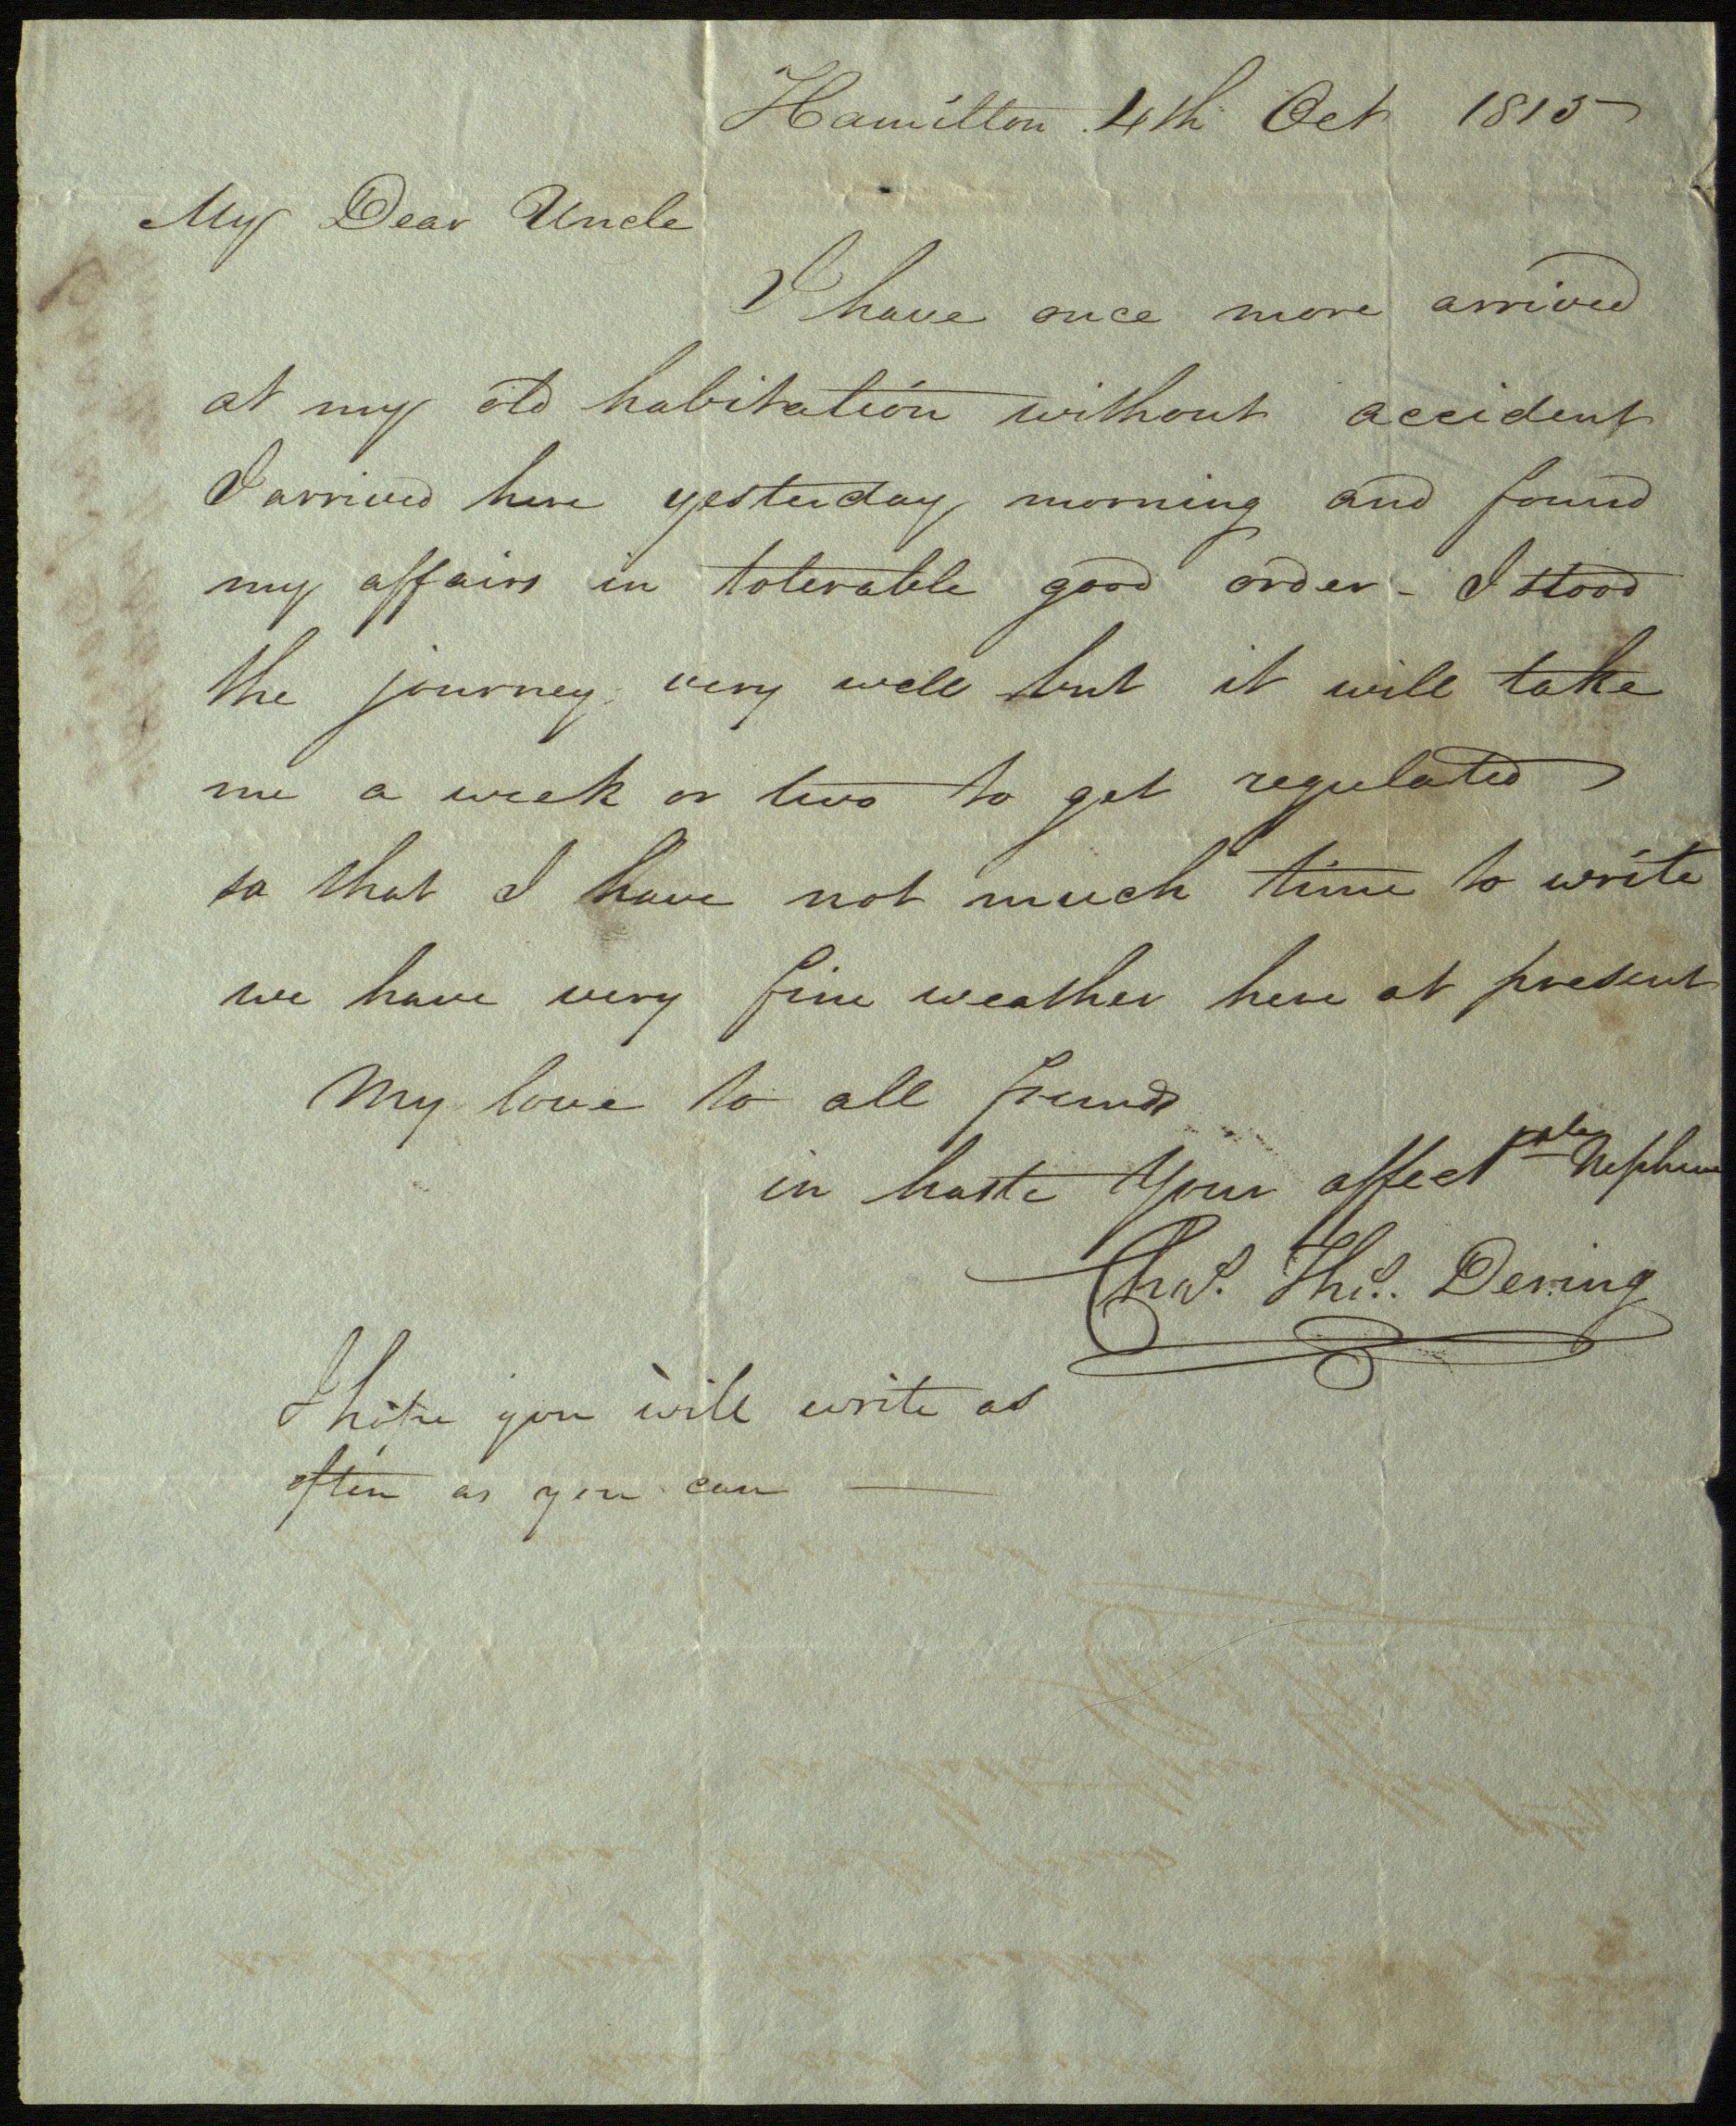 Hamilton 4th Oct 1815
My Dear Uncle
I have once more arrived
at my old habitation without accident
I arrived here yesterday morning and found
my affairs in tolerable good order - I stood
the journey very well but it will take
me a week or two to get regulated
so that I have not much time to write
we have very fine weather here at present
My love to all friends
in haste Your affectnate Nephew
Chas. Ths. Dering
I hope you will write as
often as you can —